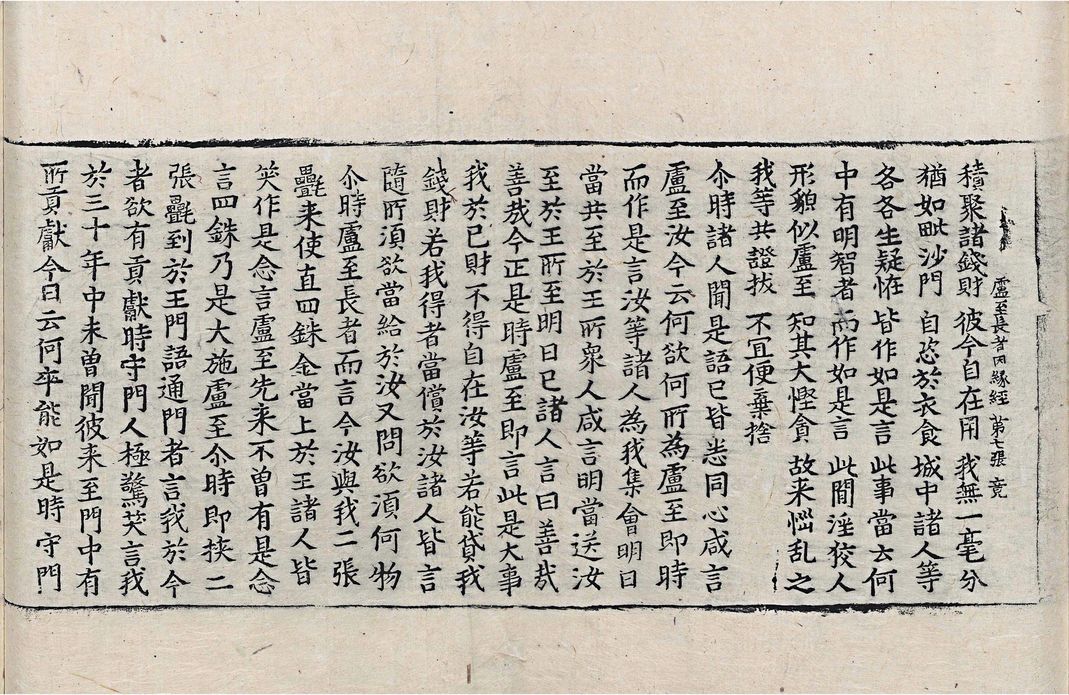 盧至長者因緣經 第七張 竟
積聚諸錢財 彼今自在用 我無一毫分
猶如毗沙門 自恣於衣食 城中諸人等
各各生疑恠 皆作如是言 此事當云何
中有明智者 而作如是言 此間淫狡人
形貌似盧至 知其大慳貪 故来惱乱之
我等共證拔 不冝便棄捨
尒時諸人聞是語已皆悉同心咸言
盧至汝今云何欲何所為盧至即時
而作是言汝等諸人為我集會明日
當共至於王所衆人咸言明當送汝
至於王所至明日已諸人言曰善㢤
善㢤今正是時盧至即言此是大事
我於已財不得自在汝等若能貸我
錢財若我得者當償於汝諸人皆言
隨所湏欲當給於汝又問欲湏何物
尒時盧至長者而言今汝與我二張
㲲来使直四銖金當上於王諸人皆
笑作是念言盧至先来不曾有是念
言四銖乃是大施盧至尒時即挾二
張㲲到於王門語通門者言我於今
者欲有貢獻時守門人極驚笑言我
於三十年中未曾聞彼来至門中有
所貢獻今日云何卒能如是時守門